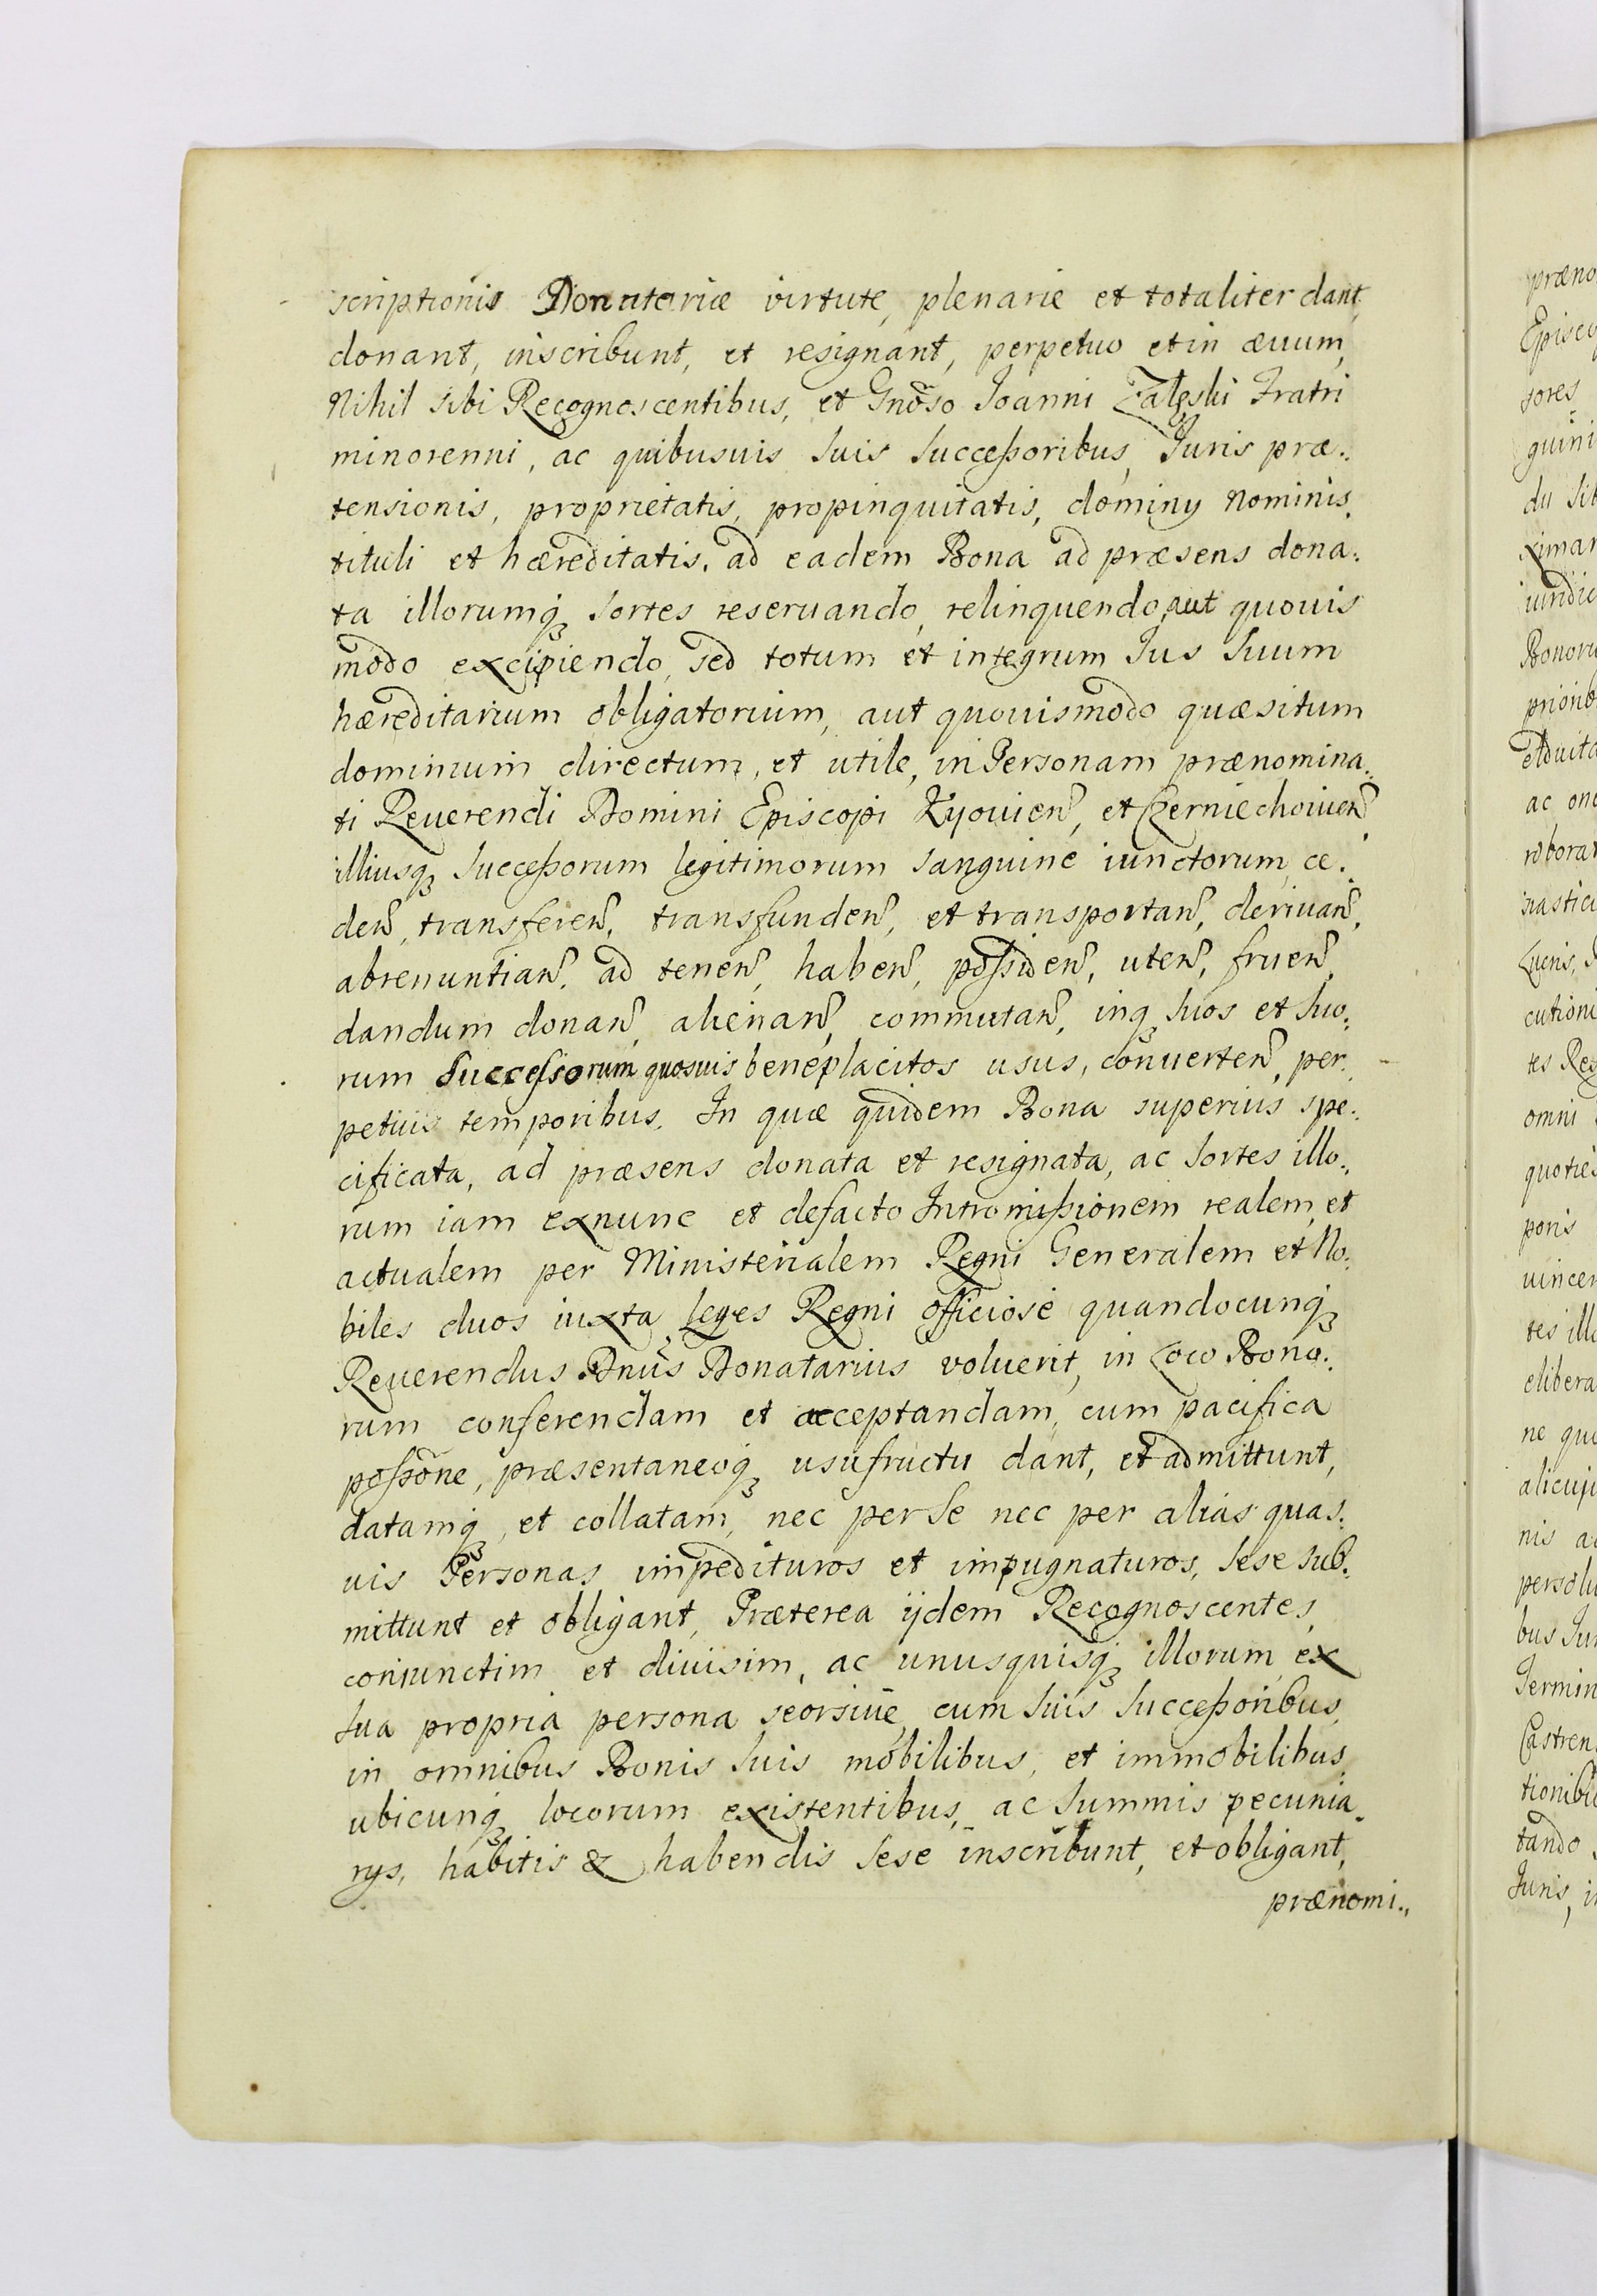 scriptionis Donatoriæ virtute, plenarie et totaliter dant,
donant, inscribunt, et resignant, perpetuo et in æuum,
Nihil sibi Recognoscentibus, et Gnōso Joanni Zaleski Fratri
minorenni, ac quibusuis suis Succeßoribus, Juris præ..
tensionis, proprietatis, propinquitatis, dominÿ Nominis,
tituli et hæreditatis, ad eadem Bona ad præsens dona:
ta illorumq₃ sortes reseruando, relinquendo, aut quouis
modo excipiendo, sed totum et integrum Jus suum
hæreditarium obligatorium, aut quouismodo quæsitum
dominium directum, et utile, in Personam prænomina..
ti Reuerendi Domini Episcopi Kyouien̄, et Czerniechouien̄
illiusq₃ Succeßorum legitimorum sanguine iunctorum, ce:
den̄, transferen̄, transfunden̄, et transportan̄, deriuan̄,
abrenuntian̄, ad tenen̄, haben̄, poßiden̄, uten̄, fruen̄,
dandum donan̄, alienan̄, commutan̄, inq₃ suos et suo:
rum Successorum quosuis beneplacitos usus, conuerten̄, per:
petuis temporibus. In quæ quidem Bona superius spe:
cificata, ad præsens donata et resignata, ac sortes illo:
rum iam exnunc et defacto Intromißionem realem, et
actualem per Ministerialem Regni Generalem et No:
biles duos iuxta Leges Regni officiose quandocunq₃
Reuerendus Dnūs Donatarius voluerit, in Loco Bono:
rum conferendam et acceptandam, cum pacifica
poßōne, præsentaneoq₃ usufructu dant, et admittunt,
datamq₃, et collatam, nec per se nec per alias quas:
uis Personas impedituros et impugnaturos, sese sub:
mittunt et obligant, Præterea ijdem Recognoscentes,
coniunctim et diuisim, ac unusquisq₃ illorum ex
sua propria persona seorsiue, cum suis Succeßoribus,
in omnibus Bonis suis mobilibus, et immobilibus,
ubicunq₃ locorum existentibus, ac summis pecunia:
rÿs, habitis & habendis sese inscribunt, et obligant,
prænomi..
præno
Episco
sores
guini
du
Bonoru
ac
cutioni
tes
omni
poris
ne
alicuju
nis
bus
Termin
Castren
tando
Juris,